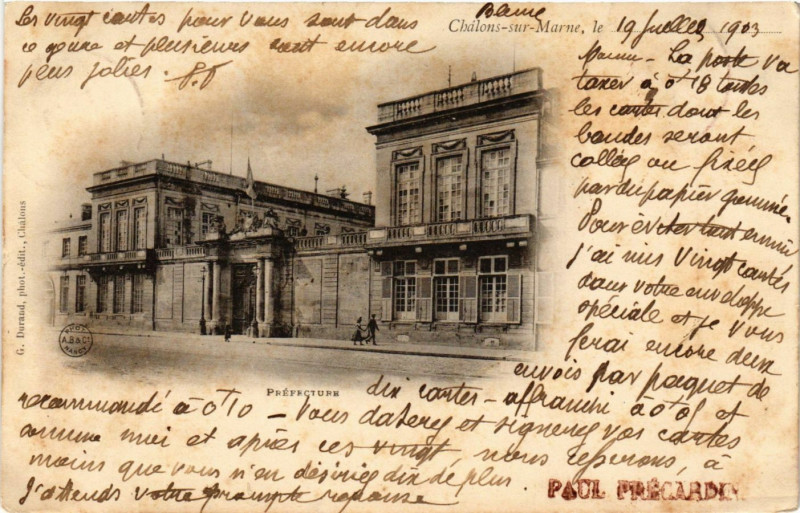 Les vingt cartes pour vous sont dans
ce genre et plusieurs sont encore
plus jolies. P.P
Châlons-sur-Marne, le 19 Juillet 1903
La poste va
taxer à 0f18 toutes
les cartes dont les
bandes seront
collées ou fixées
par du papier gommé.
Pour éviter tout ennui
j'ai mis vingt cartes
dans votre enveloppe
spéciale et je vous
ferai encore deux
envois par paquet de
dix cartes - affranchi à 0f05 et
recommandé à 0f10 - Vous daterez et signerez vos cartes
comme moi et après ces vingt, nous cesserons, à
moins que vous n'en désiriez dix de plus.
J'attends votre prompte réponse
PRÉFECTURE
G. Durand, phot.-édit., Châlons
A.B.&Cie
NANCY
PAUL PRÉCARDIN